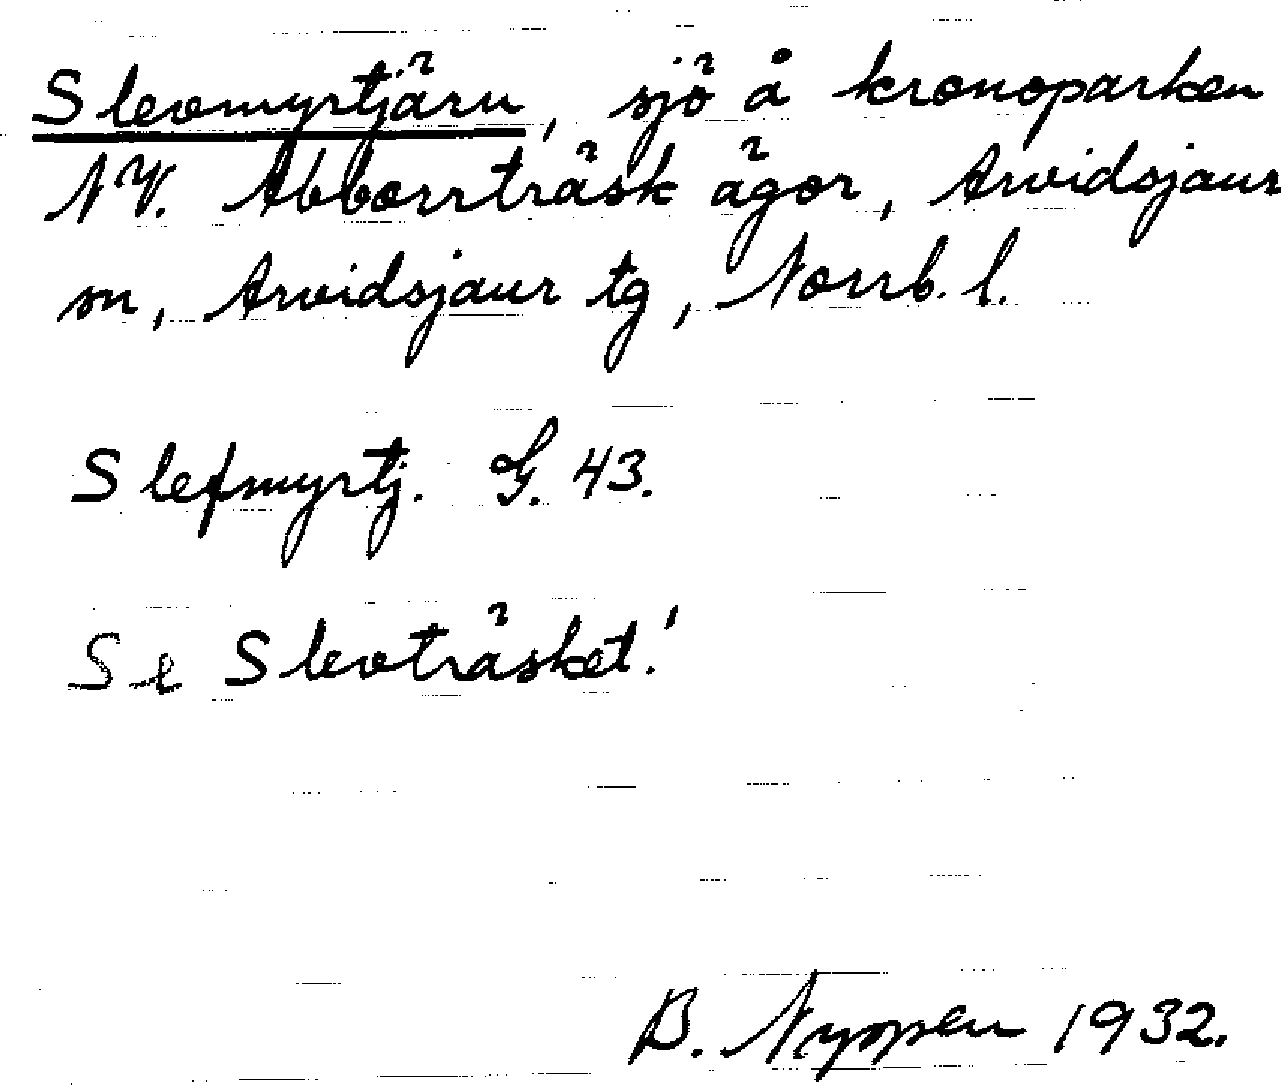 Slevmyrtjärn, sjö å kronoparken
NV. Abborrträsk ägor, Arvidsjaur
sn, Arvidsjaur tg, Norrb. l.
Slefmyrtj. G. 43.
Se Slevträsket!
B. Nyspen 1932.